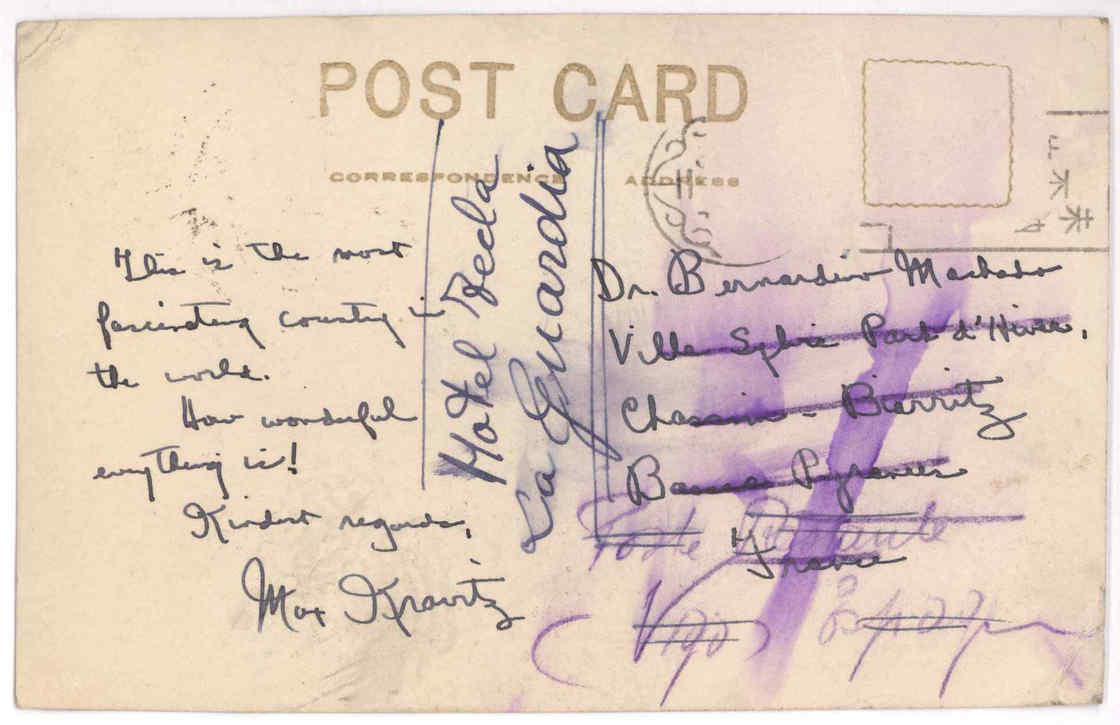 POST CARD
CORRESPONDENCE
ADDRESS
This is the most
fascinating country in
the world.
How wonderful
everything is!
Kindest regards,
Max Kravitz
Hotel
La Guardia
Dr. Bernardino Machado
Villa Sylvia Park d'Hiver,
Biarritz
Basses Pyrenees
France
Poste Restante
(Vigo)